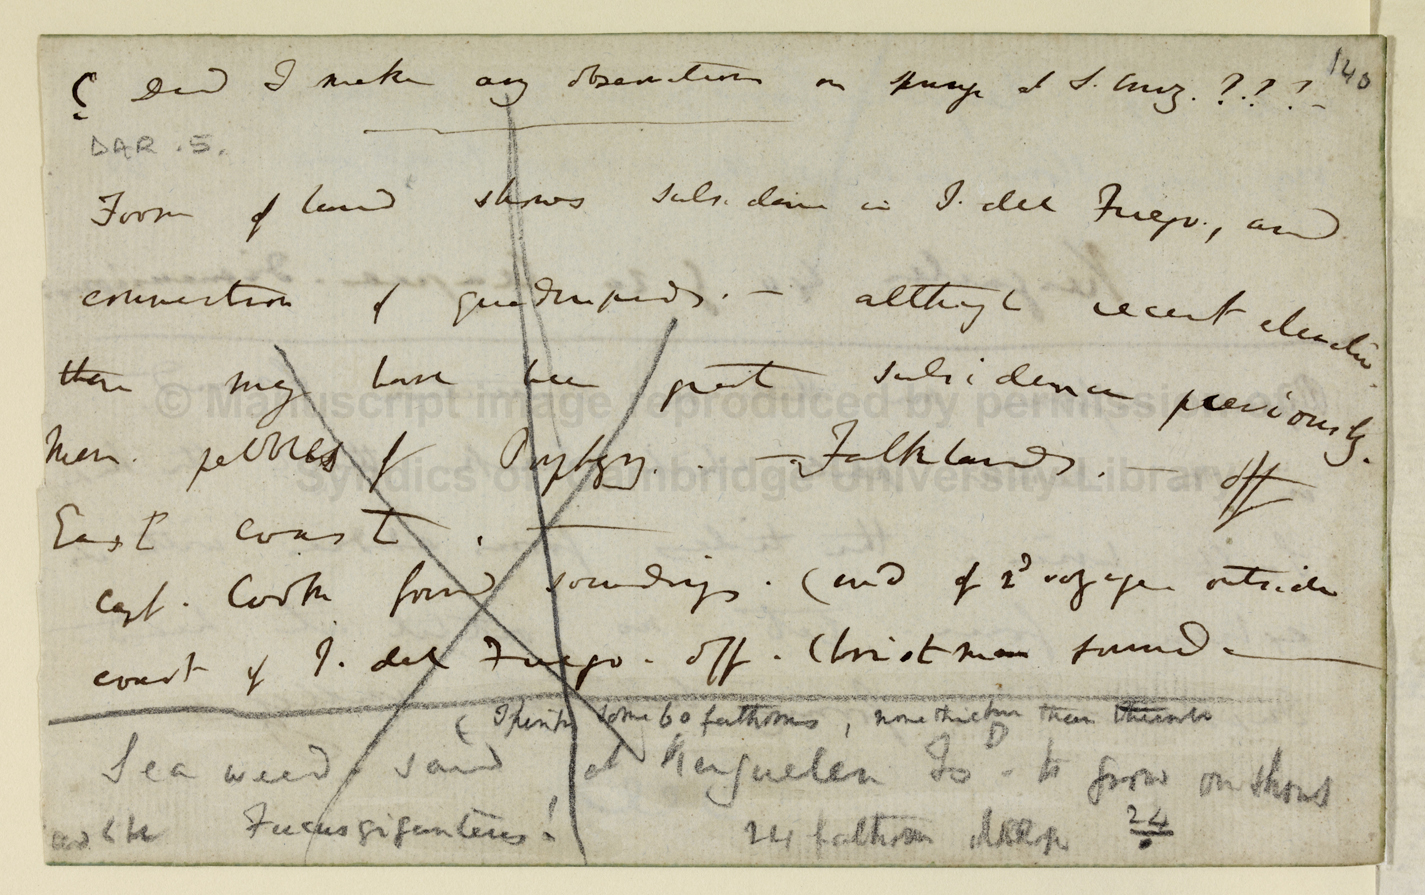 140
¿ Did I make any observations on springs at S. Cruz. ???—
DAR .5.
Form of land shows subsidence in T. del Fuego., and
connection of quadrupeds. — although recent elevation.
there may have been great subsidence previously.
pebbles of — Falklands. — off
East coast. —
Capt. Cook found soundings. (end of 2d voyage outside
coast of T. del Fuego. off. Christmas sound.—
(I think some 60 fathoms, none thicker than thumb
Sea weed. said at Kerguelen Is^D. to grow on shoals
Fucus giganteus! 24 fathom deep 24
© Manuscript image reproduced by permission of
Syndics of Cambridge University Library